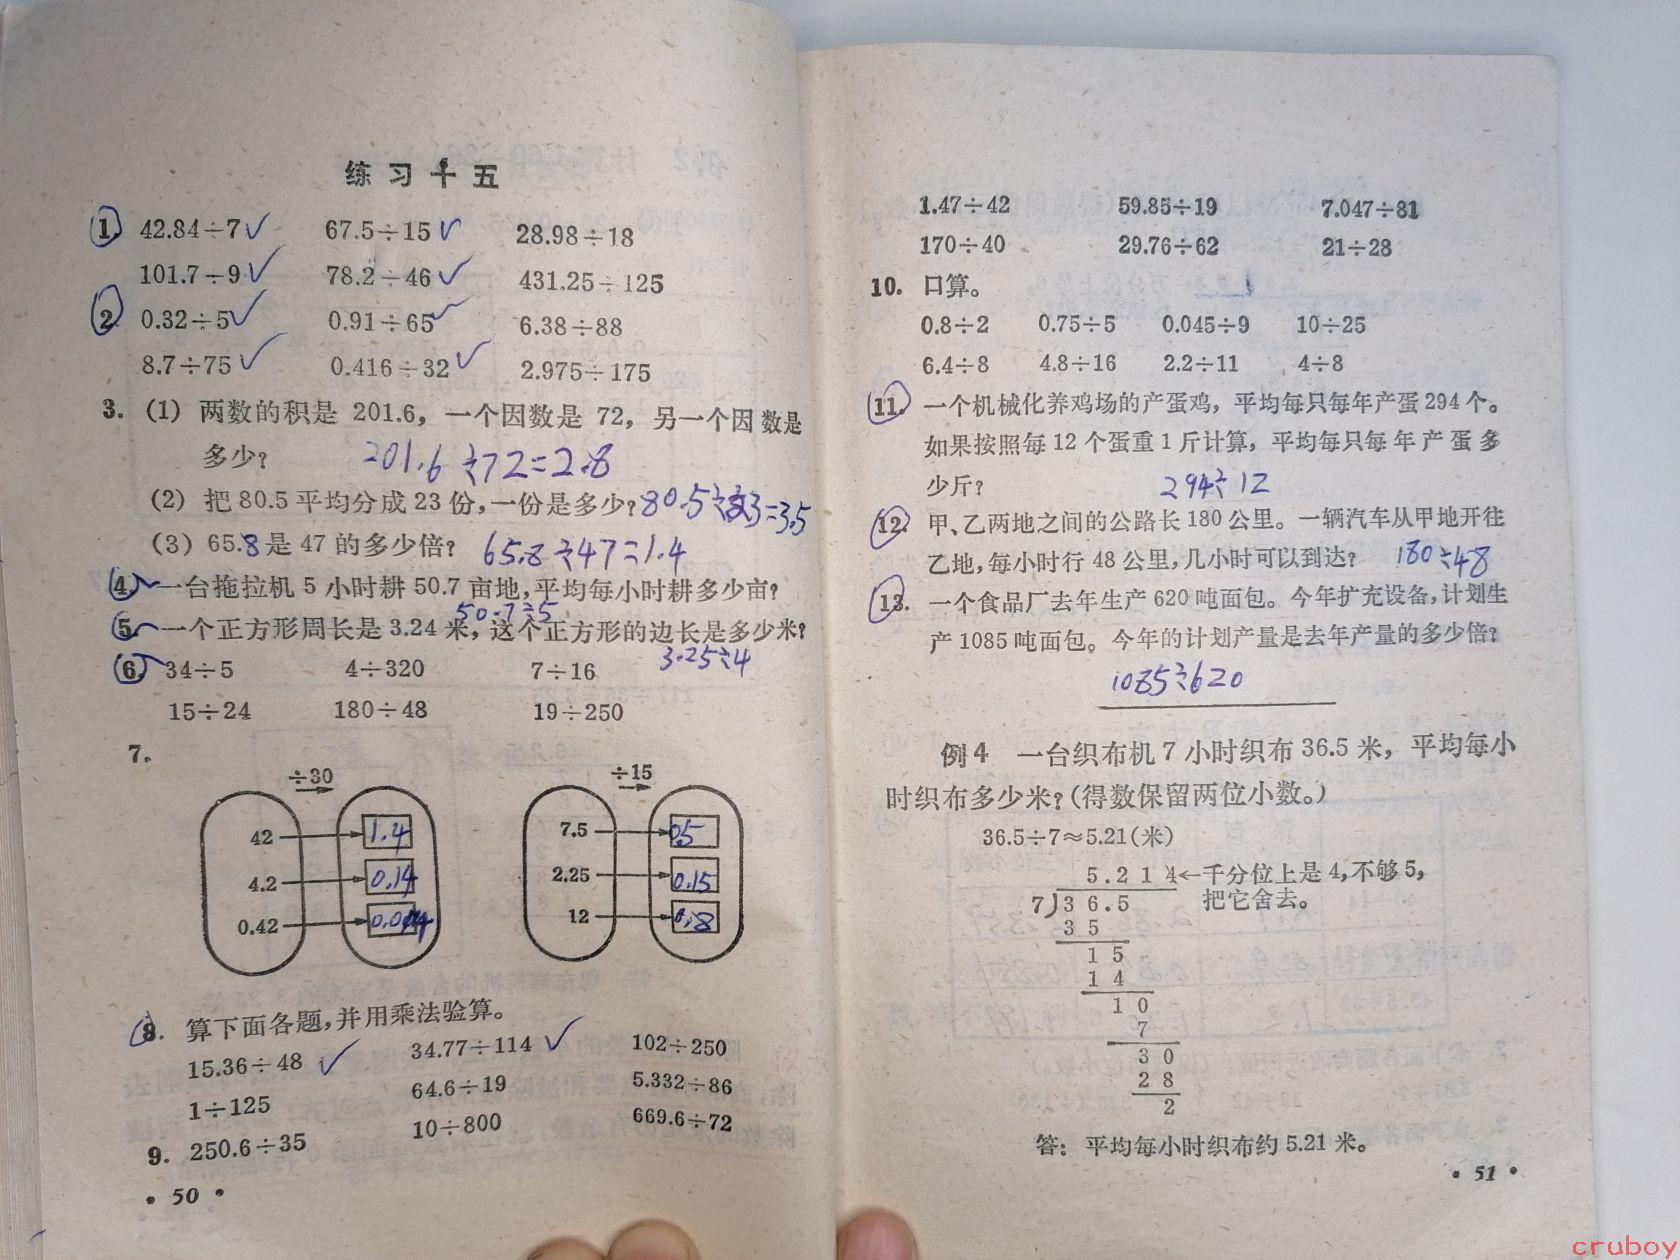 练习十五
1. 42.84÷7✓ 67.5÷15✓ 28.98÷18
101.7÷9✓ 78.2÷46✓ 431.25÷125
2. 0.32÷5✓ 0.91÷65✓ 6.38÷88
8.7÷75✓ 0.416÷32✓ 2.975÷175
3. (1) 两数的积是 201.6, 一个因数是 72, 另一个因数是
多少? 201.6÷72=2.8
(2) 把 80.5 平均分成 23 份,一份是多少? 80.5÷23=3.5
(3) 65.8 是 47 的多少倍? 65.8÷47=1.4
4. 一台拖拉机 5 小时耕 50.7 亩地,平均每小时耕多少亩?
50.7÷5
5. 一个正方形周长是 3.24 米, 这个正方形的边长是多少米?
3.25÷4
6. 34÷5 4÷320 7÷16
15÷24 180÷48 19÷250
7.
÷30 ÷15
42 1.4 7.5 0.5
4.2 0.14 2.25 0.15
0.42 0.014 12 0.8
8. 算下面各题,并用乘法验算。
15.36÷48 ✓ 34.77÷114 ✓ 102÷250
1÷125 64.6÷19 5.332÷86
9. 250.6÷35 10÷800 669.6÷72
• 50 •
1.47÷42 59.85÷19 7.047÷81
170÷40 29.76÷62 21÷28
10. 口算。
0.8÷2 0.75÷5 0.045÷9 10÷25
6.4÷8 4.8÷16 2.2÷11 4÷8
11. 一个机械化养鸡场的产蛋鸡, 平均每只每年产蛋294个。
如果按照每 12 个蛋重 1 斤计算, 平均每只每年产蛋多
少斤? 294÷12
12. 甲、乙两地之间的公路长 180 公里。一辆汽车从甲地开往
乙地,每小时行 48 公里,几小时可以到达? 180÷48
13. 一个食品厂去年生产 620 吨面包。今年扩充设备,计划生
产 1085 吨面包。今年的计划产量是去年产量的多少倍?
1085÷620
例 4 一台织布机 7 小时织布 36.5 米, 平均每小
时织布多少米?(得数保留两位小数。)
36.5÷7≈5.21(米)
5.2 1 4←千分位上是 4,不够 5,
7)3 6.5 把它舍去。
3 5
1 5
1 4
1 0
7
3 0
2 8
2
答: 平均每小时织布约 5.21 米。
• 51 •
cruboy